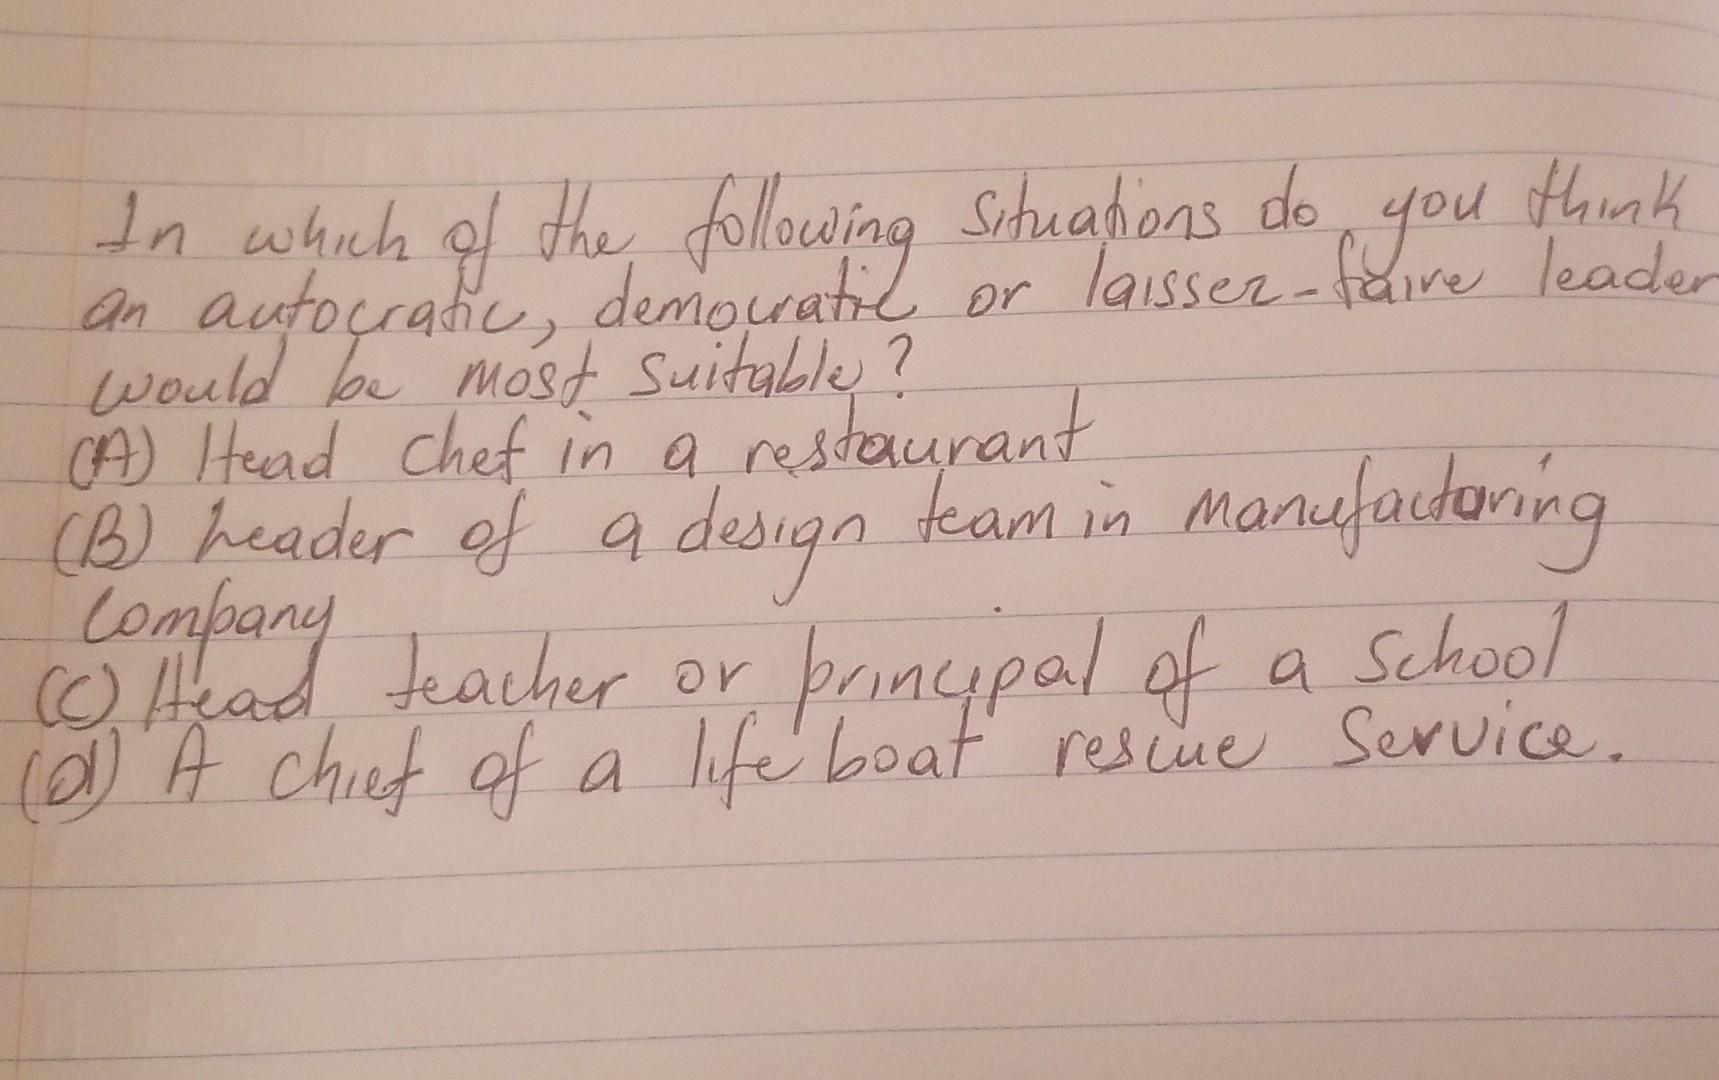 In which of the following situations do you think
an autocratic, democratic or laissez-faire leader
would be most suitable?
(A) Head chef in a restaurant
(B) Leader of a design team in manufacturing
Company
(C) Head teacher or principal of a school
(d) A chief of a life boat rescue service.